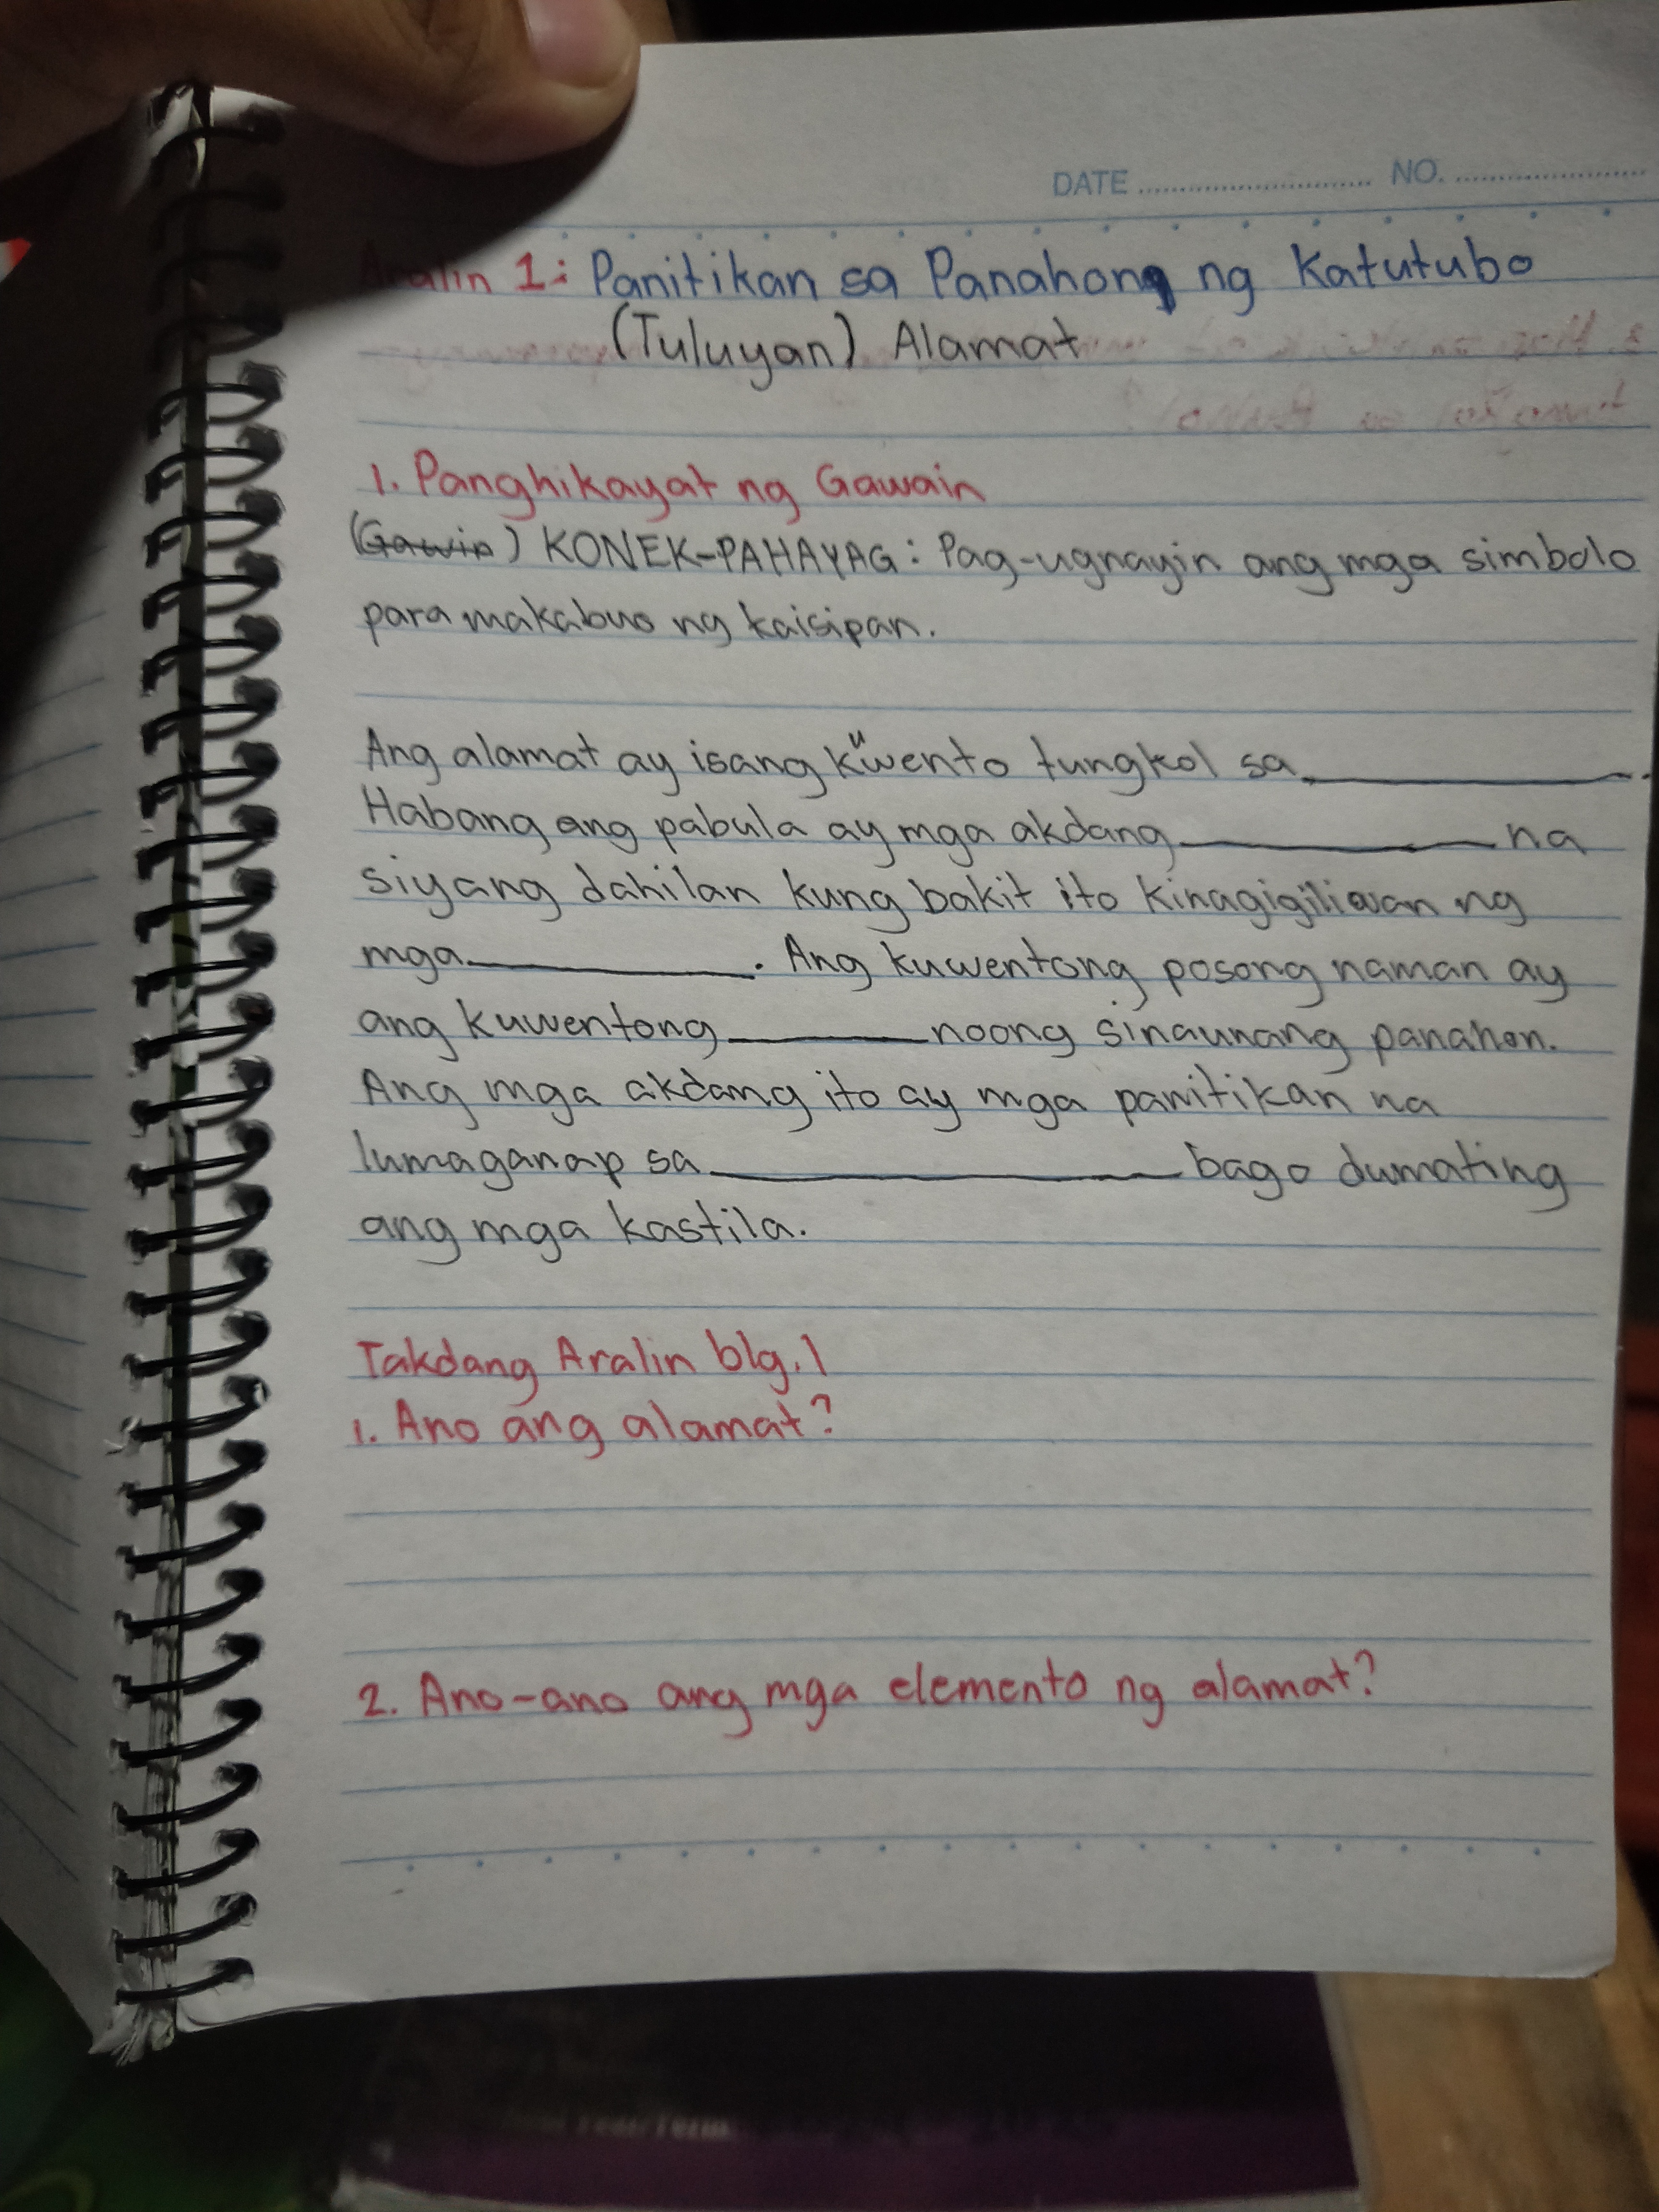 DATE NO.
Aralin 1: Panitikan sa Panahong ng Katutubo
(Tuluyan) Alamat
1. Panghikayat ng Gawain
(Gawin) KONEK-PAHAYAG: Pag-ugnayin ang mga simbolo
para makabuo ng kaisipan.
Ang alamat ay isang kuwento tungkol sa ____________.
Habang ang pabula ay mga akdang ____________ na
siyang dahilan kung bakit ito kinagigiliwan ng
mga ____________. Ang kuwentong posong naman ay
ang kuwentong ________ noong sinaunang panahon.
Ang mga akdang ito ay mga panitikan na
lumaganap sa __________________ bago dumating
ang mga kastila.
Takdang Aralin blg. 1
1. Ano ang alamat?
2. Ano-ano ang mga elemento ng alamat?